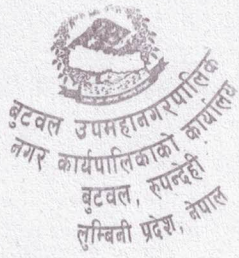 बुटवल उपमहानगरपालिक
नगर कार्यपालिकाको कार्यालय
बुटवल, रुपन्देही
लुम्बिनी प्रदेश, नेपाल